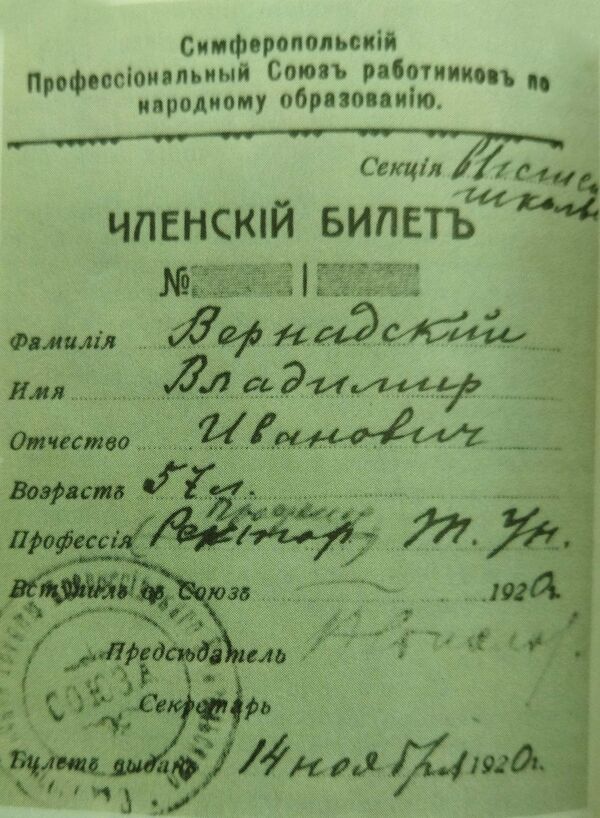 Симферопольскій
Профессіональный Союзъ работниковъ по
народному образованію.
Секція высшей
школы
ЧЛЕНСКІЙ БИЛЕТЪ
№
Фамилія Вернадский
Имя Владимир
Отчество Иванович
Возрастъ 57 л.
Профессія (Ректор) Т. Ун.
Вступилъ въ Союзъ 1920 г.
Предсѣдатель
Секретарь
СОЮЗЪ
Билетъ выданъ 14 ноября 1920 г.